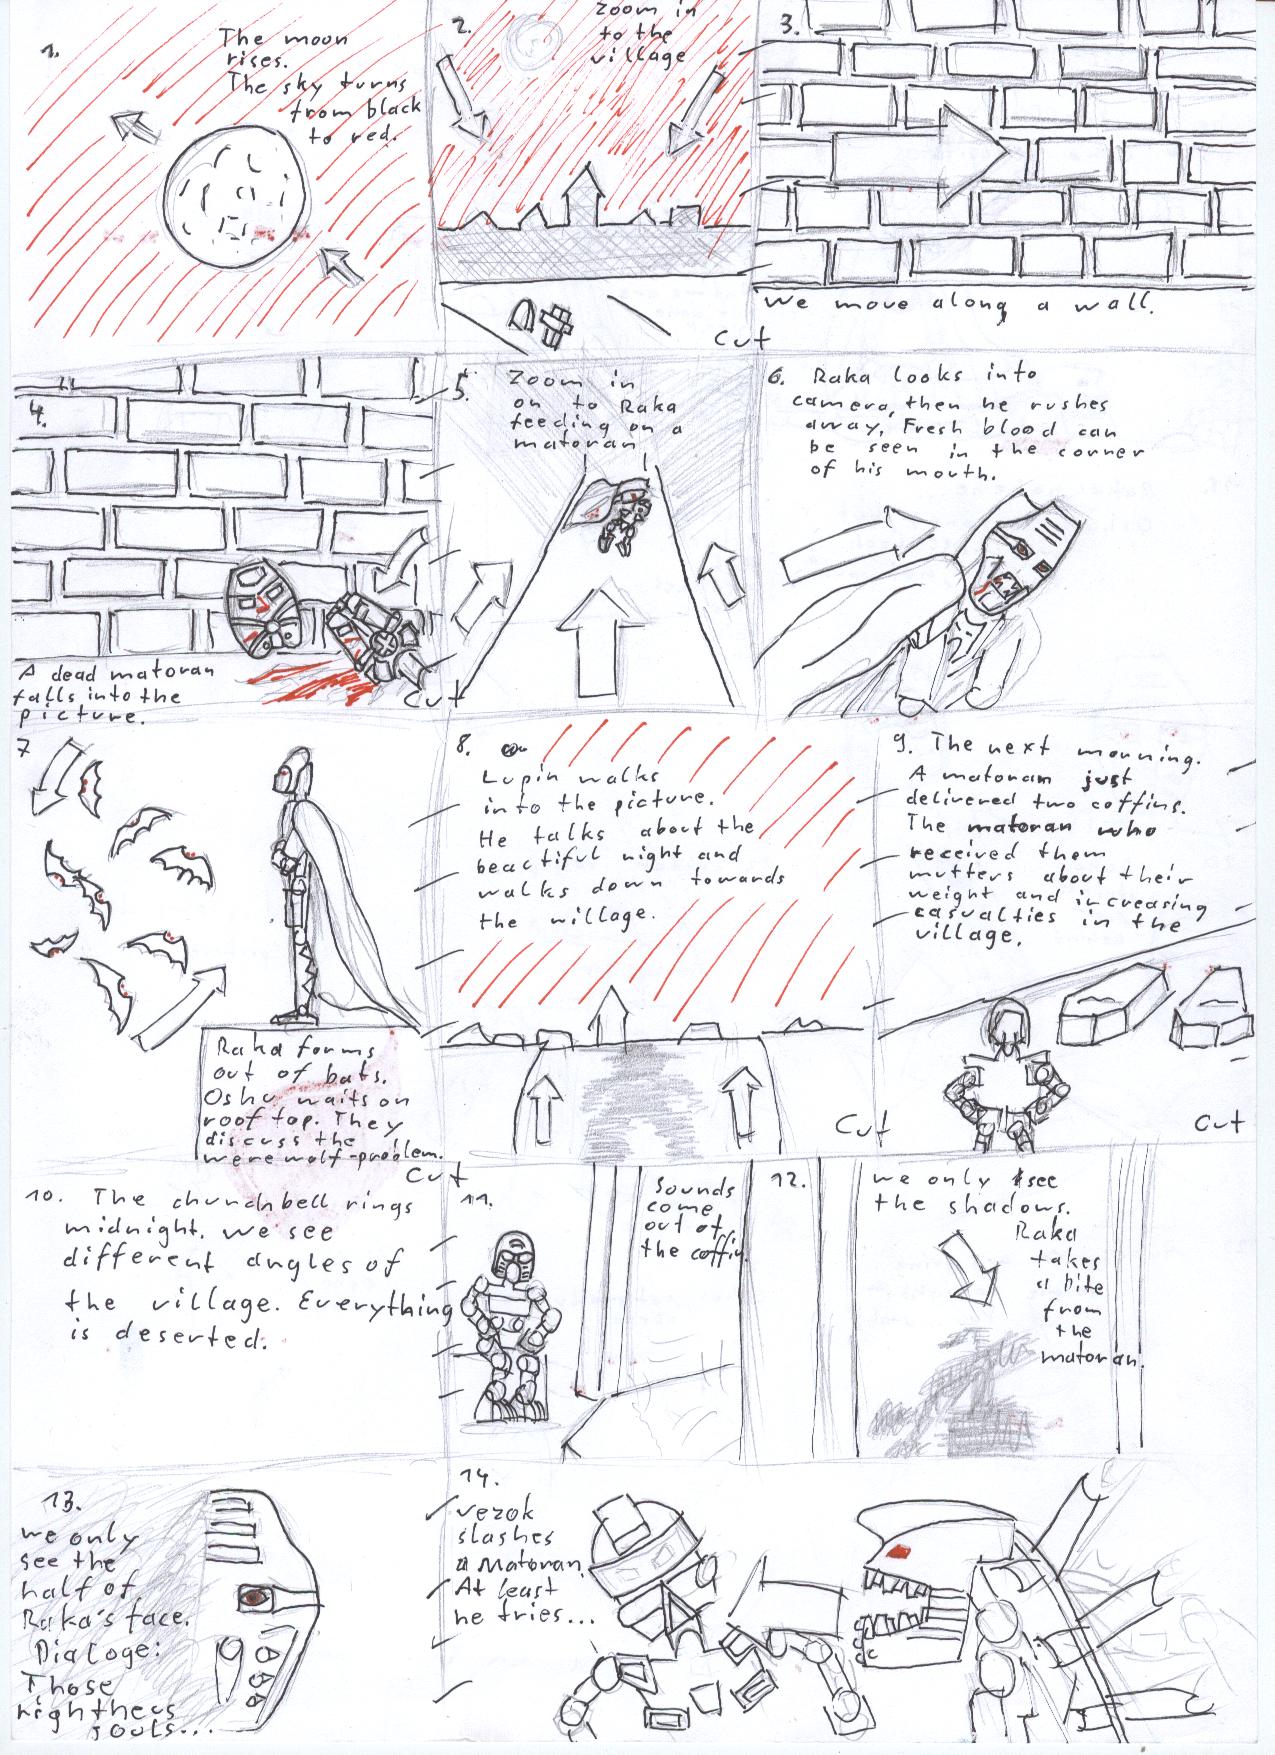 1.
The moon
rises.
The sky turns
from black
to red.
2.
Zoom in
to the
village
Cut
3.
We move along a wall.
4.
A dead matoran
falls into the
picture.
Cut
5.
Zoom in
on to Raka
feeding on a
matoran
6. Raka looks into
camera, then he rushes
away, Fresh blood can
be seen in the corner
of his mouth.
7
Raka forms
out of bats.
Oshu waits on
roof top. They
discuss the
werewolf-problem.
Cut
8.
Lupin walks
into the picture.
He talks about the
beautiful night and
walks down towards
the village.
Cut
9. The next morning.
A matoran just
delivered two coffins.
The matoran who
received them
mutters about their
weight and increasing
casualties in the
village.
Cut
10. The churchbell rings
midnight. We see
different angles of
the village. Everything
is deserted.
11.
Sounds
come
out of
the coffin.
12.
we only see
the shadows.
Raka
takes
a bite
from
the
matoran.
13.
we only
see the
half of
Raka's face.
Dialoge:
Those
nightheus
souls...
14.
vezok
slashes
a Matoran.
At least
he tries...